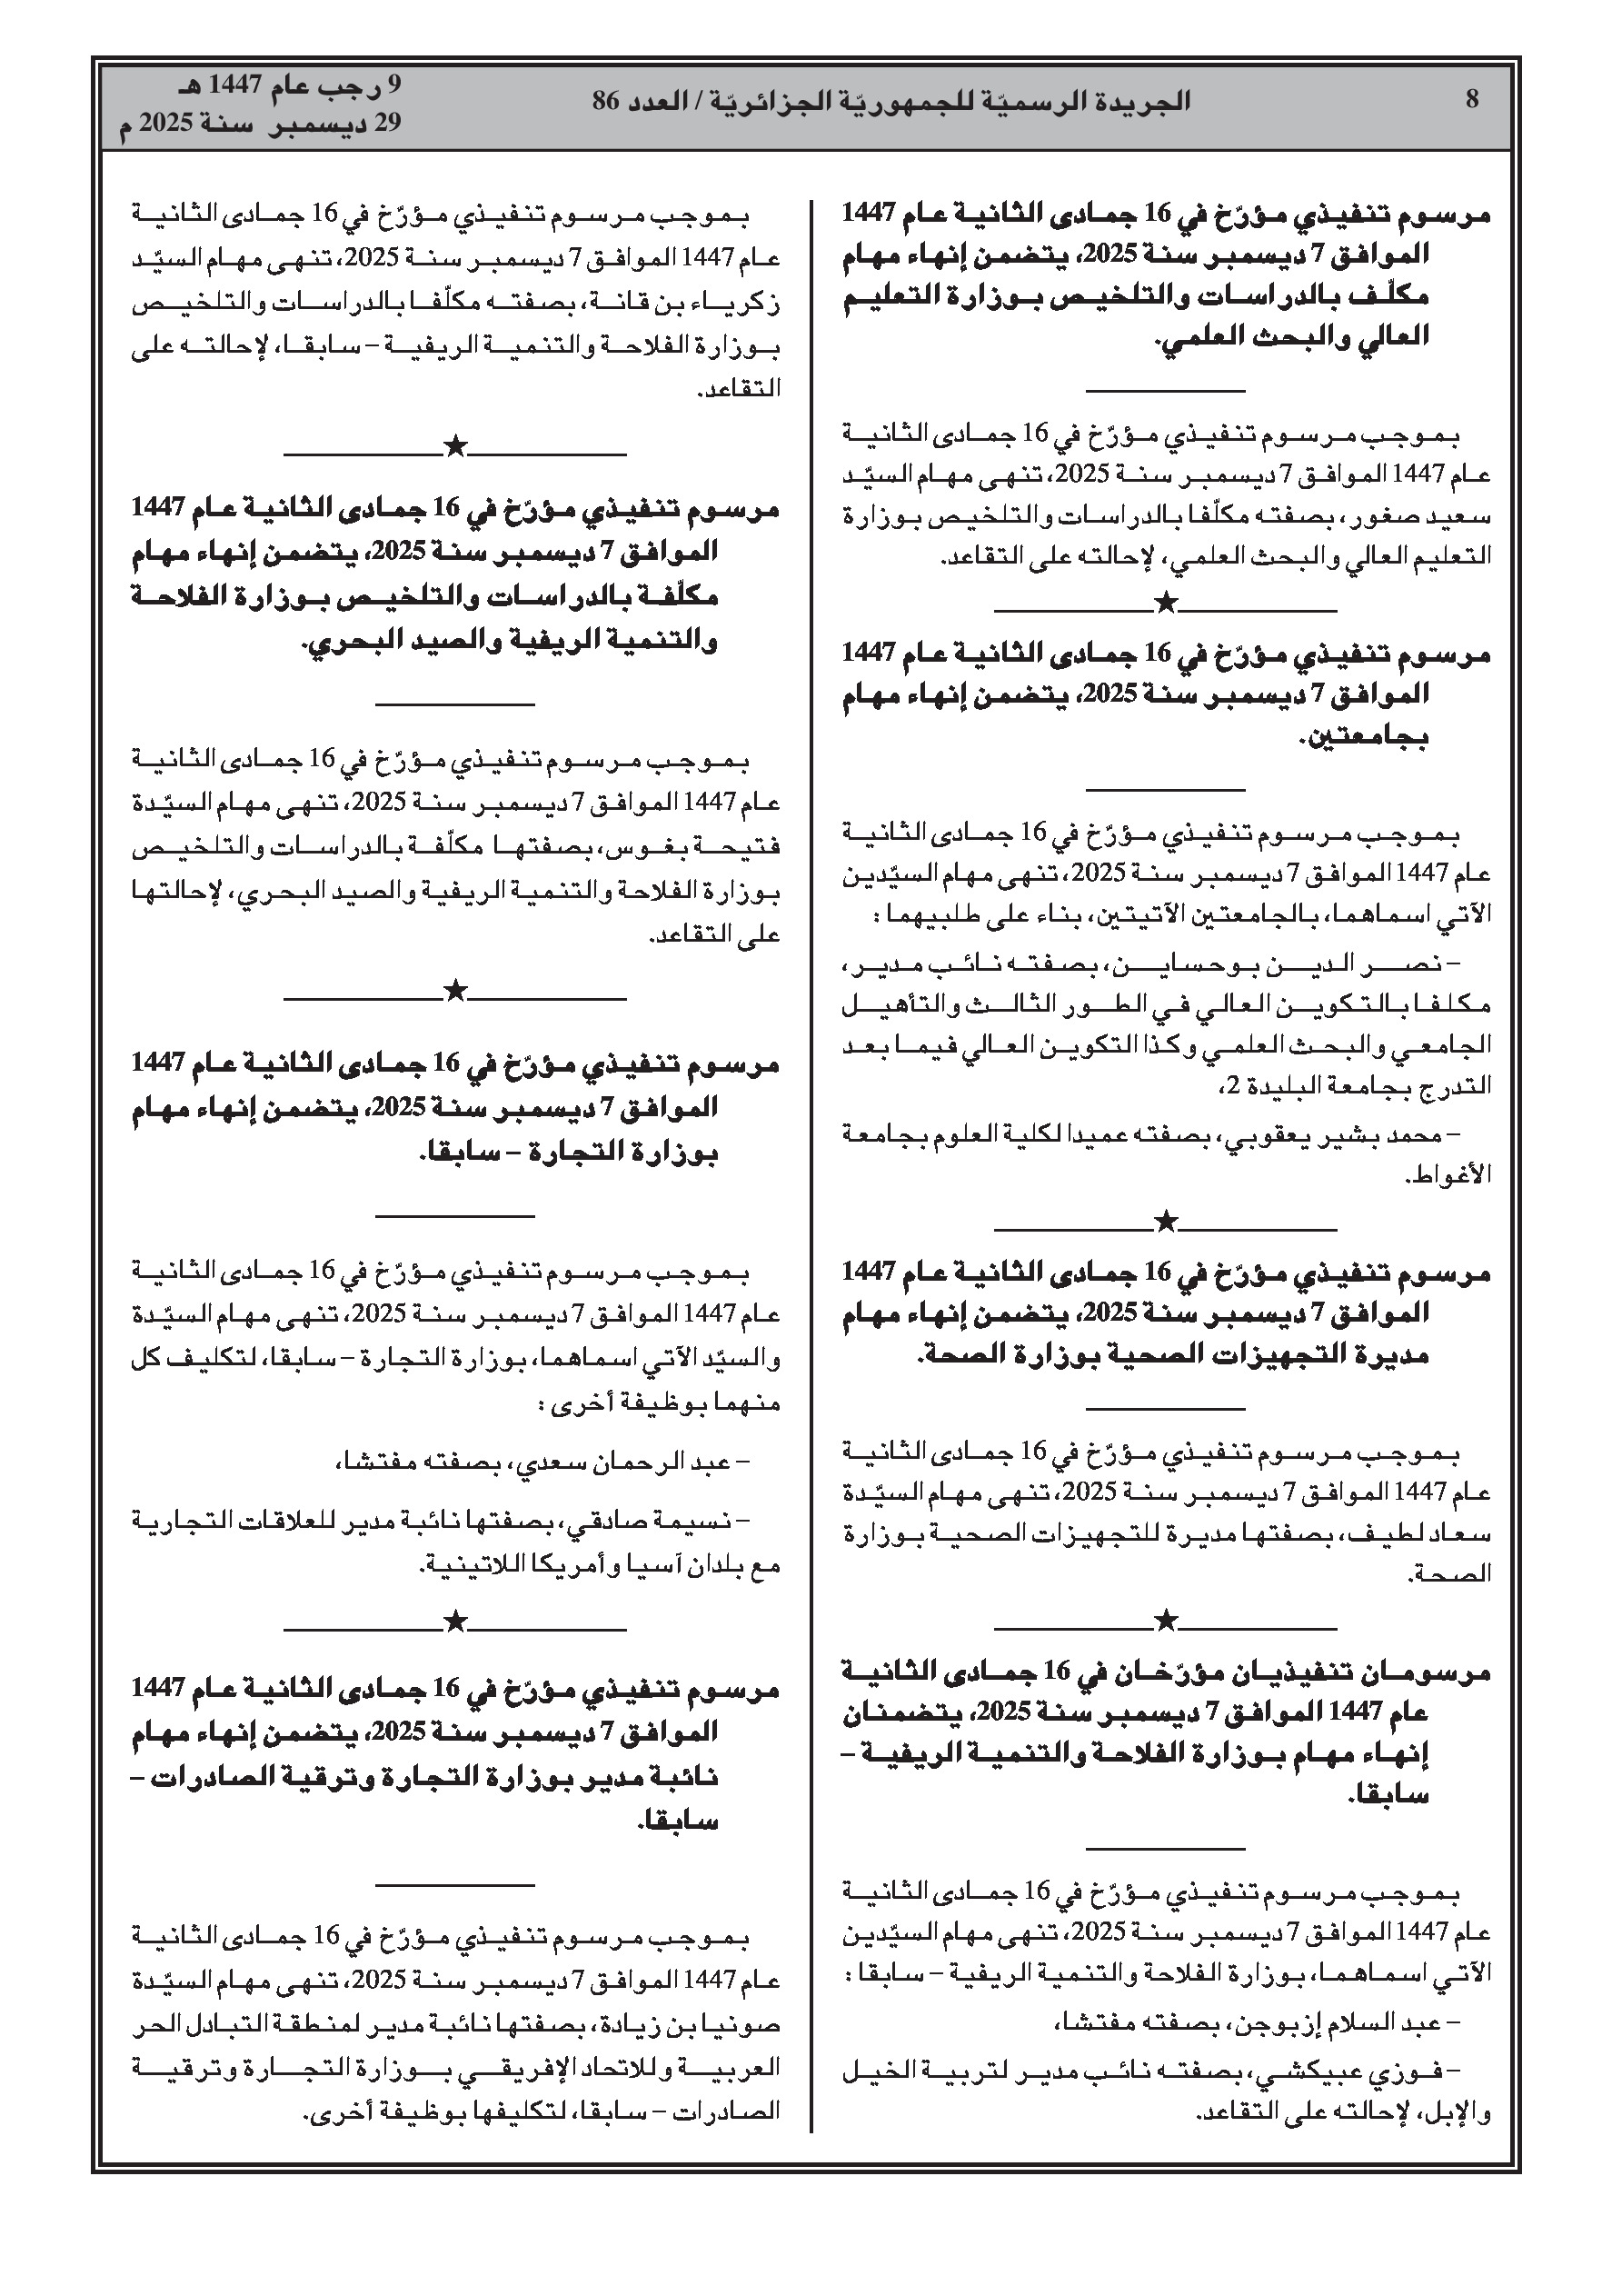 8
الجريدة الرسميّة للجمهوريّة الجزائريّة / العدد 86
9 رجب عام 1447 هـ
29 ديسمبر سنة 2025 م
مرسوم تنفيذي مؤرّخ في 16 جمادى الثانية عام 1447
الموافق 7 ديسمبر سنة 2025، يتضمن إنهاء مهام
مكلّف بالدراسات والتلخيص بوزارة التعليم
العالي والبحث العلمي.
بموجب مرسوم تنفيذي مؤرّخ في 16 جمادى الثانية
عام 1447 الموافق 7 ديسمبر سنة 2025، تنهى مهام السيّد
سعيد صغور، بصفته مكلّفا بالدراسات والتلخيص بوزارة
التعليم العالي والبحث العلمي، لإحالته على التقاعد.
مرسوم تنفيذي مؤرّخ في 16 جمادى الثانية عام 1447
الموافق 7 ديسمبر سنة 2025، يتضمن إنهاء مهام
بجامعتين.
بموجب مرسوم تنفيذي مؤرّخ في 16 جمادى الثانية
عام 1447 الموافق 7 ديسمبر سنة 2025، تنهى مهام السيّدين
الآتي اسماهما، بالجامعتين الآتيتين، بناء على طلبيهما :
– نصر الدين بوحساين، بصفته نائب مدير،
مكلفا بالتكوين العالي في الطور الثالث والتأهيل
الجامعي والبحث العلمي وكذا التكوين العالي فيما بعد
التدرج بجامعة البليدة 2،
– محمد بشير يعقوبي، بصفته عميدا لكلية العلوم بجامعة
الأغواط.
مرسوم تنفيذي مؤرّخ في 16 جمادى الثانية عام 1447
الموافق 7 ديسمبر سنة 2025، يتضمن إنهاء مهام
مديرة التجهيزات الصحية بوزارة الصحة.
بموجب مرسوم تنفيذي مؤرّخ في 16 جمادى الثانية
عام 1447 الموافق 7 ديسمبر سنة 2025، تنهى مهام السيّدة
سعاد لطيف، بصفتها مديرة للتجهيزات الصحية بوزارة
الصحة.
مرسومان تنفيذيان مؤرّخان في 16 جمادى الثانية
عام 1447 الموافق 7 ديسمبر سنة 2025، يتضمنان
إنهاء مهام بوزارة الفلاحة والتنمية الريفية –
سابقا.
بموجب مرسوم تنفيذي مؤرّخ في 16 جمادى الثانية
عام 1447 الموافق 7 ديسمبر سنة 2025، تنهى مهام السيّدين
الآتي اسماهما، بوزارة الفلاحة والتنمية الريفية – سابقا :
– عبد السلام إزبوجن، بصفته مفتشا،
– فوزي عبيكشي، بصفته نائب مدير لتربية الخيل
والإبل، لإحالته على التقاعد.
بموجب مرسوم تنفيذي مؤرّخ في 16 جمادى الثانية
عام 1447 الموافق 7 ديسمبر سنة 2025، تنهى مهام السيّد
زكرياء بن قانة، بصفته مكلّفا بالدراسات والتلخيص
بوزارة الفلاحة والتنمية الريفية – سابقا، لإحالته على
التقاعد.
مرسوم تنفيذي مؤرّخ في 16 جمادى الثانية عام 1447
الموافق 7 ديسمبر سنة 2025، يتضمن إنهاء مهام
مكلّفة بالدراسات والتلخيص بوزارة الفلاحة
والتنمية الريفية والصيد البحري.
بموجب مرسوم تنفيذي مؤرّخ في 16 جمادى الثانية
عام 1447 الموافق 7 ديسمبر سنة 2025، تنهى مهام السيّدة
فتيحة بغوس، بصفتها مكلّفة بالدراسات والتلخيص
بوزارة الفلاحة والتنمية الريفية والصيد البحري، لإحالتها
على التقاعد.
مرسوم تنفيذي مؤرّخ في 16 جمادى الثانية عام 1447
الموافق 7 ديسمبر سنة 2025، يتضمن إنهاء مهام
بوزارة التجارة – سابقا.
بموجب مرسوم تنفيذي مؤرّخ في 16 جمادى الثانية
عام 1447 الموافق 7 ديسمبر سنة 2025، تنهى مهام السيّدة
والسيّد الآتي اسماهما، بوزارة التجارة – سابقا، لتكليف كل
منهما بوظيفة أخرى :
– عبد الرحمان سعدي، بصفته مفتشا،
– نسيمة صادقي، بصفتها نائبة مدير للعلاقات التجارية
مع بلدان آسيا وأمريكا اللاتينية.
مرسوم تنفيذي مؤرّخ في 16 جمادى الثانية عام 1447
الموافق 7 ديسمبر سنة 2025، يتضمن إنهاء مهام
نائبة مدير بوزارة التجارة وترقية الصادرات –
سابقا.
بموجب مرسوم تنفيذي مؤرّخ في 16 جمادى الثانية
عام 1447 الموافق 7 ديسمبر سنة 2025، تنهى مهام السيّدة
صونيا بن زيادة، بصفتها نائبة مدير لمنطقة التبادل الحر
العربية وللاتحاد الإفريقي بوزارة التجارة وترقية
الصادرات – سابقا، لتكليفها بوظيفة أخرى.